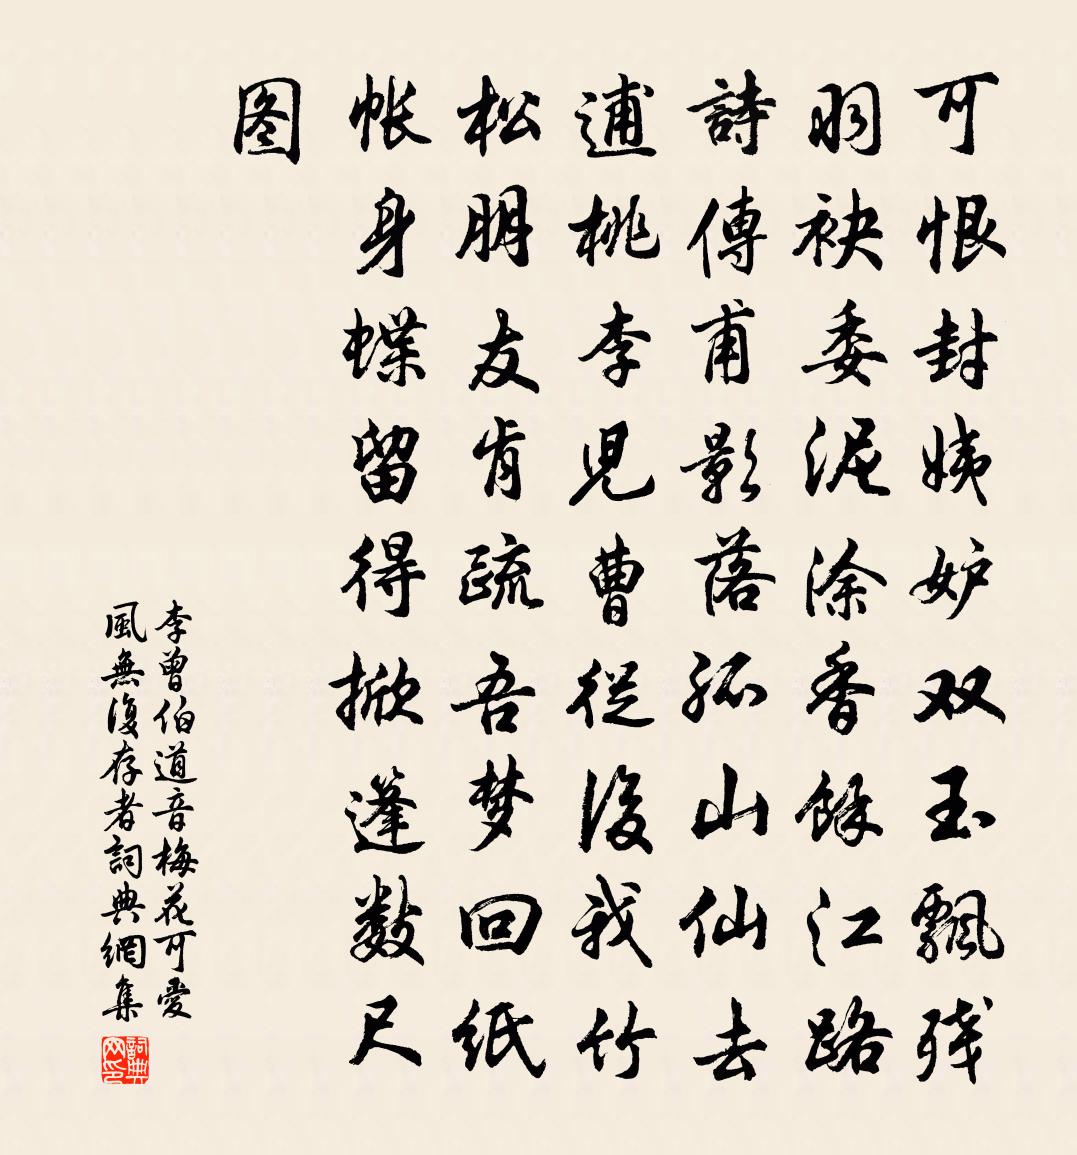 可恨封姨妒双玉飄残
羽袂委泥涂香餘江路
詩傳甫影落孤山仙去
逋桃李児曹從後我竹
松朋友肯疏吾梦回紙
帐身蝶留得掀篷數尺
图
李曾伯道音梅花可愛
風無復存者詞典網集
詞典网印